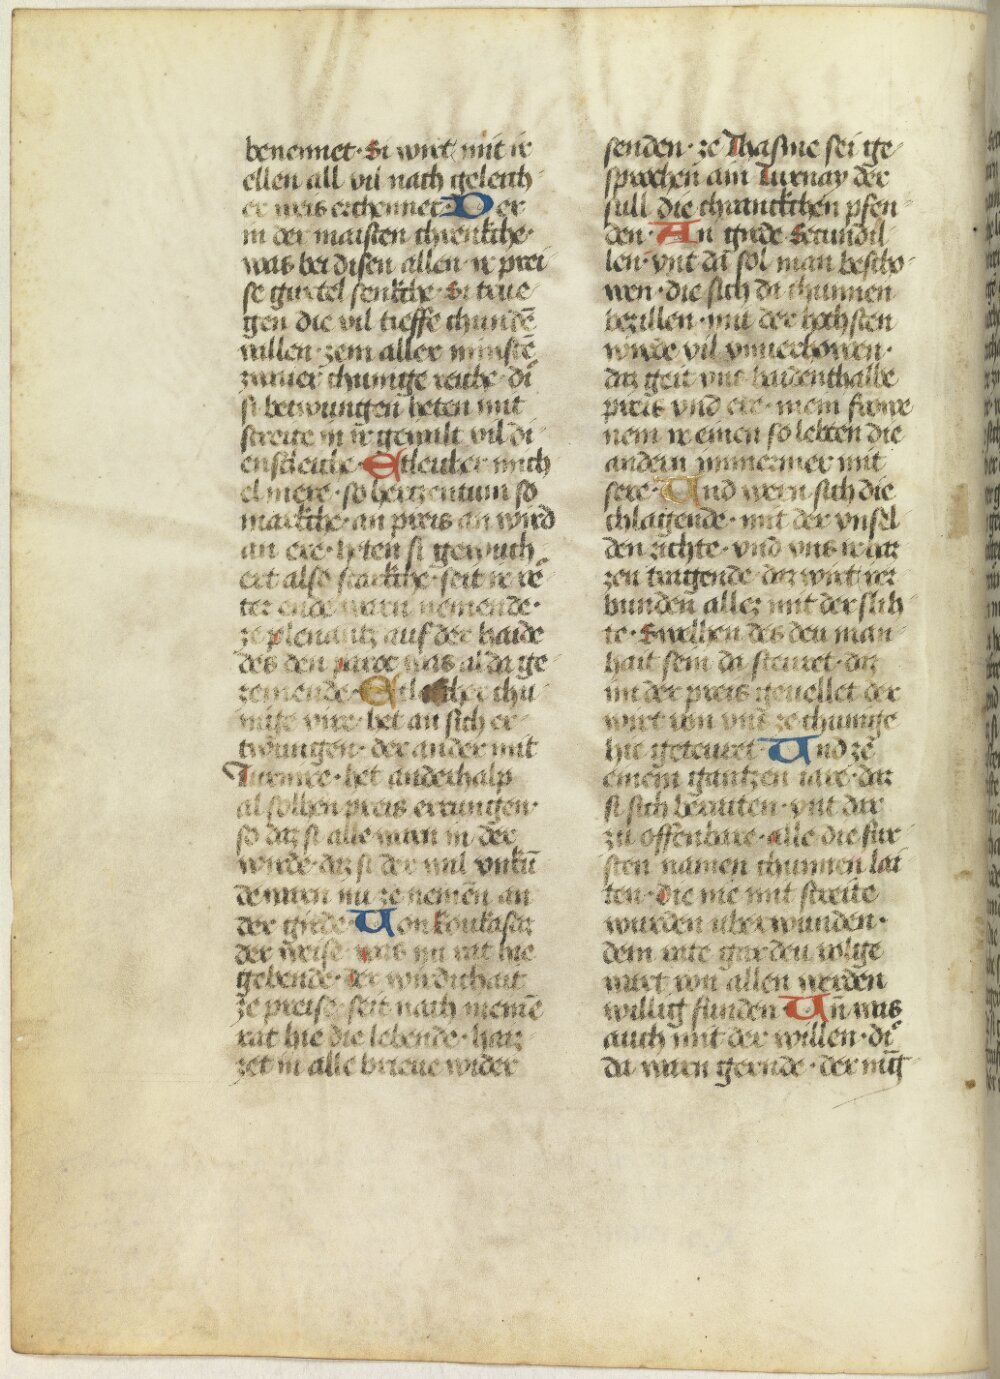 benennet · Si wirt mit ir
ellen all vil nach geleich
er weis erchennet · Der
in der maisten chrenkche ·
was bei disen allen · ir prei
se gurtel senkche · Si true
gen die vil tieffe chundē
willen · zem aller minstē
zwaier chunige reiche · di
si betwungen heten mit
streite in ir gewalt vil di
enstleiche · Etleicher mich
el mere · so hertzentum so
markche · an preis an wird
an ere · heten si gewuch
ert also starkche · seit ir rē
ter ende warn nemende ·
ze plenantz auf der haide
des den was al da ge
zemende · Etleicher chu
nige vire · het an sich er
twungen · der ander mit
Turnire · het anderhalp
al solhen preis errungen ·
so daz si alle warn in der
wirde · daz si der wal vnkū
de warn nu ze nemen an
der girde · Von koukasas
der greise · was nu rat hie
gebende · der wirdichait
ze preise · seit nach meinē
rat hie die lebende · haiz
zet in alle brieue wider
senden · ze Thasme sei ge
sprochen ain Turnay der
sull die chranckchen pfen
den · An girde Secundil
len · vnt da sol man bescho
wen · die sich da chunnen
bezillen · mit der hochsten
wirde vil vnuerhowen ·
daz geit vnt haidenthalbe
preis vnd ere · mein frowe
nem ir einen so lebten die
andern immermer mit
sere · Und wern sich die
chlagende · mit der vnsel
den richte · vnd vns ir har
zen tragende · daz wirt ver
bunden allez mit der slih
te · Swelhen des deu man
hait sein da steuret · daz
im der preis geuellet der
wirt von vns ze chunige
hie geteuret · Und zē
einem gantzen iare · daz
si sich beraiten · vnt dar
zu offenbare · alle die fur
sten namen chunnen lai
ten · die nie mit streite
wurden vberwunden ·
dem rate garden wlge
wart von allen werden
willig funden · Un̄ was
auch mit der willen · di
da warn gernde · der